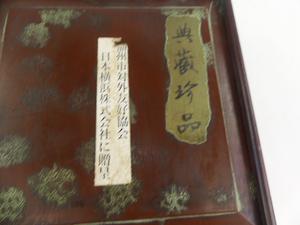 典藏珍品
州市対外友好協会
日本横浜株式会社に贈呈